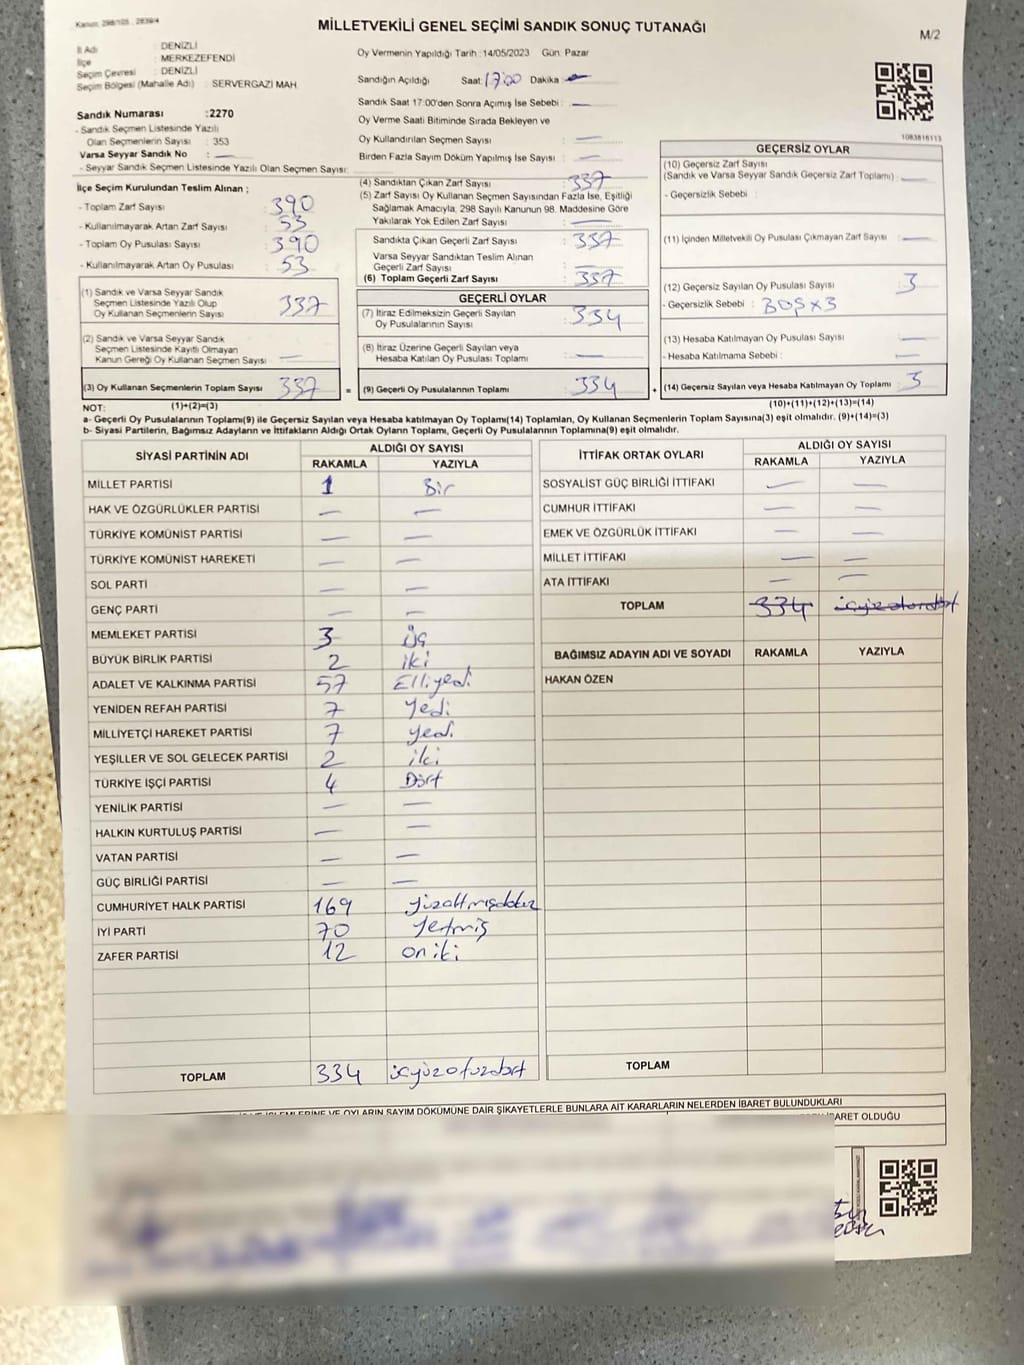 Kanun: 298/105 , 2839/4
MİLLETVEKİLİ GENEL SEÇİMİ SANDIK SONUÇ TUTANAĞI
M/2
İl Adı : DENİZLİ
İlçe : MERKEZEFENDİ
Seçim Çevresi : DENİZLİ
Seçim Bölgesi (Mahalle Adı) : SERVERGAZİ MAH.
Oy Vermenin Yapıldığı Tarih : 14/05/2023 Gün: Pazar
Sandığın Açıldığı Saat: 17:00 Dakika : —
Sandık Saat 17:00'den Sonra Açımış İse Sebebi : —
Oy Verme Saati Bitiminde Sırada Bekleyen ve
Oy Kullandırılan Seçmen Sayısı : —
Birden Fazla Sayım Döküm Yapılmış İse Sayısı : —
Sandık Numarası : 2270
- Sandık Seçmen Listesinde Yazılı
Olan Seçmenlerin Sayısı : 353
Varsa Seyyar Sandık No : —
- Seyyar Sandık Seçmen Listesinde Yazılı Olan Seçmen Sayısı:
İlçe Seçim Kurulundan Teslim Alınan ;
- Toplam Zarf Sayısı : 390
- Kullanılmayarak Artan Zarf Sayısı : 53
- Toplam Oy Pusulası Sayısı : 390
- Kullanılmayarak Artan Oy Pusulası : 53
(1) Sandık ve Varsa Seyyar Sandık
Seçmen Listesinde Yazılı Olup
Oy Kullanan Seçmenlerin Sayısı : 337
(2) Sandık ve Varsa Seyyar Sandık
Seçmen Listesinde Kayıtlı Olmayan
Kanun Gereği Oy Kullanan Seçmen Sayısı : —
(3) Oy Kullanan Seçmenlerin Toplam Sayısı : 337 =
(4) Sandıktan Çıkan Zarf Sayısı : 337
(5) Zarf Sayısı Oy Kullanan Seçmen Sayısından Fazla İse, Eşitliği
Sağlamak Amacıyla, 298 Sayılı Kanunun 98. Maddesine Göre
Yakılarak Yok Edilen Zarf Sayısı : —
Sandıkta Çıkan Geçerli Zarf Sayısı : 337
Varsa Seyyar Sandıktan Teslim Alınan
Geçerli Zarf Sayısı : —
(6) Toplam Geçerli Zarf Sayısı : 337
GEÇERLİ OYLAR
(7) İtiraz Edilmeksizin Geçerli Sayılan
Oy Pusulalarının Sayısı : 334
(8) İtiraz Üzerine Geçerli Sayılan veya
Hesaba Katılan Oy Pusulası Toplamı : —
(9) Geçerli Oy Pusulalarının Toplamı : 334 +
1083816113
GEÇERSİZ OYLAR
(10) Geçersiz Zarf Sayısı
(Sandık ve Varsa Seyyar Sandık Geçersiz Zarf Toplamı) : —
- Geçersizlik Sebebi :
(11) İçinden Milletvekili Oy Pusulası Çıkmayan Zarf Sayısı : —
(12) Geçersiz Sayılan Oy Pusulası Sayısı : 3
- Geçersizlik Sebebi : BOŞ x 3
(13) Hesaba Katılmayan Oy Pusulası Sayısı : —
- Hesaba Katılmama Sebebi : —
(14) Geçersiz Sayılan veya Hesaba Katılmayan Oy Toplamı : 3
NOT: (1)+(2)=(3) (10)+(11)+(12)+(13)=(14)
a- Geçerli Oy Pusulalarının Toplamı(9) ile Geçersiz Sayılan veya Hesaba katılmayan Oy Toplamı(14) Toplamları, Oy Kullanan Seçmenlerin Toplam Sayısına(3) eşit olmalıdır. (9)+(14)=(3)
b- Siyasi Partilerin, Bağımsız Adayların ve İttifakların Aldığı Ortak Oyların Toplamı, Geçerli Oy Pusulalarının Toplamına(9) eşit olmalıdır.
SİYASİ PARTİNİN ADI ALDIĞI OY SAYISI
RAKAMLA YAZIYLA
MİLLET PARTİSİ 1 Bir
HAK VE ÖZGÜRLÜKLER PARTİSİ — —
TÜRKİYE KOMÜNİST PARTİSİ — —
TÜRKİYE KOMÜNİST HAREKETİ — —
SOL PARTİ — —
GENÇ PARTİ — —
MEMLEKET PARTİSİ 3 Üç
BÜYÜK BİRLİK PARTİSİ 2 iki
ADALET VE KALKINMA PARTİSİ 57 Elliyedi
YENİDEN REFAH PARTİSİ 7 Yedi
MİLLİYETÇİ HAREKET PARTİSİ 7 yedi
YEŞİLLER VE SOL GELECEK PARTİSİ 2 iki
TÜRKİYE İŞÇİ PARTİSİ 4 Dört
YENİLİK PARTİSİ — —
HALKIN KURTULUŞ PARTİSİ — —
VATAN PARTİSİ — —
GÜÇ BİRLİĞİ PARTİSİ — —
CUMHURİYET HALK PARTİSİ 169 yüzaltmışdokuz
İYİ PARTİ 70 Yetmiş
ZAFER PARTİSİ 12 on iki
TOPLAM 334 üçyüzotuzdört
İTTİFAK ORTAK OYLARI ALDIĞI OY SAYISI
RAKAMLA YAZIYLA
SOSYALİST GÜÇ BİRLİĞİ İTTİFAKI — —
CUMHUR İTTİFAKI — —
EMEK VE ÖZGÜRLÜK İTTİFAKI — —
MİLLET İTTİFAKI — —
ATA İTTİFAKI — —
TOPLAM 334 üçyüzotuzdört
BAĞIMSIZ ADAYIN ADI VE SOYADI RAKAMLA YAZIYLA
HAKAN ÖZEN
TOPLAM
İŞLEMLERİNE VE OYLARIN SAYIM DÖKÜMÜNE DAİR ŞİKAYETLERLE BUNLARA AİT KARARLARIN NELERDEN İBARET BULUNDUKLARI
İBARET OLDUĞU